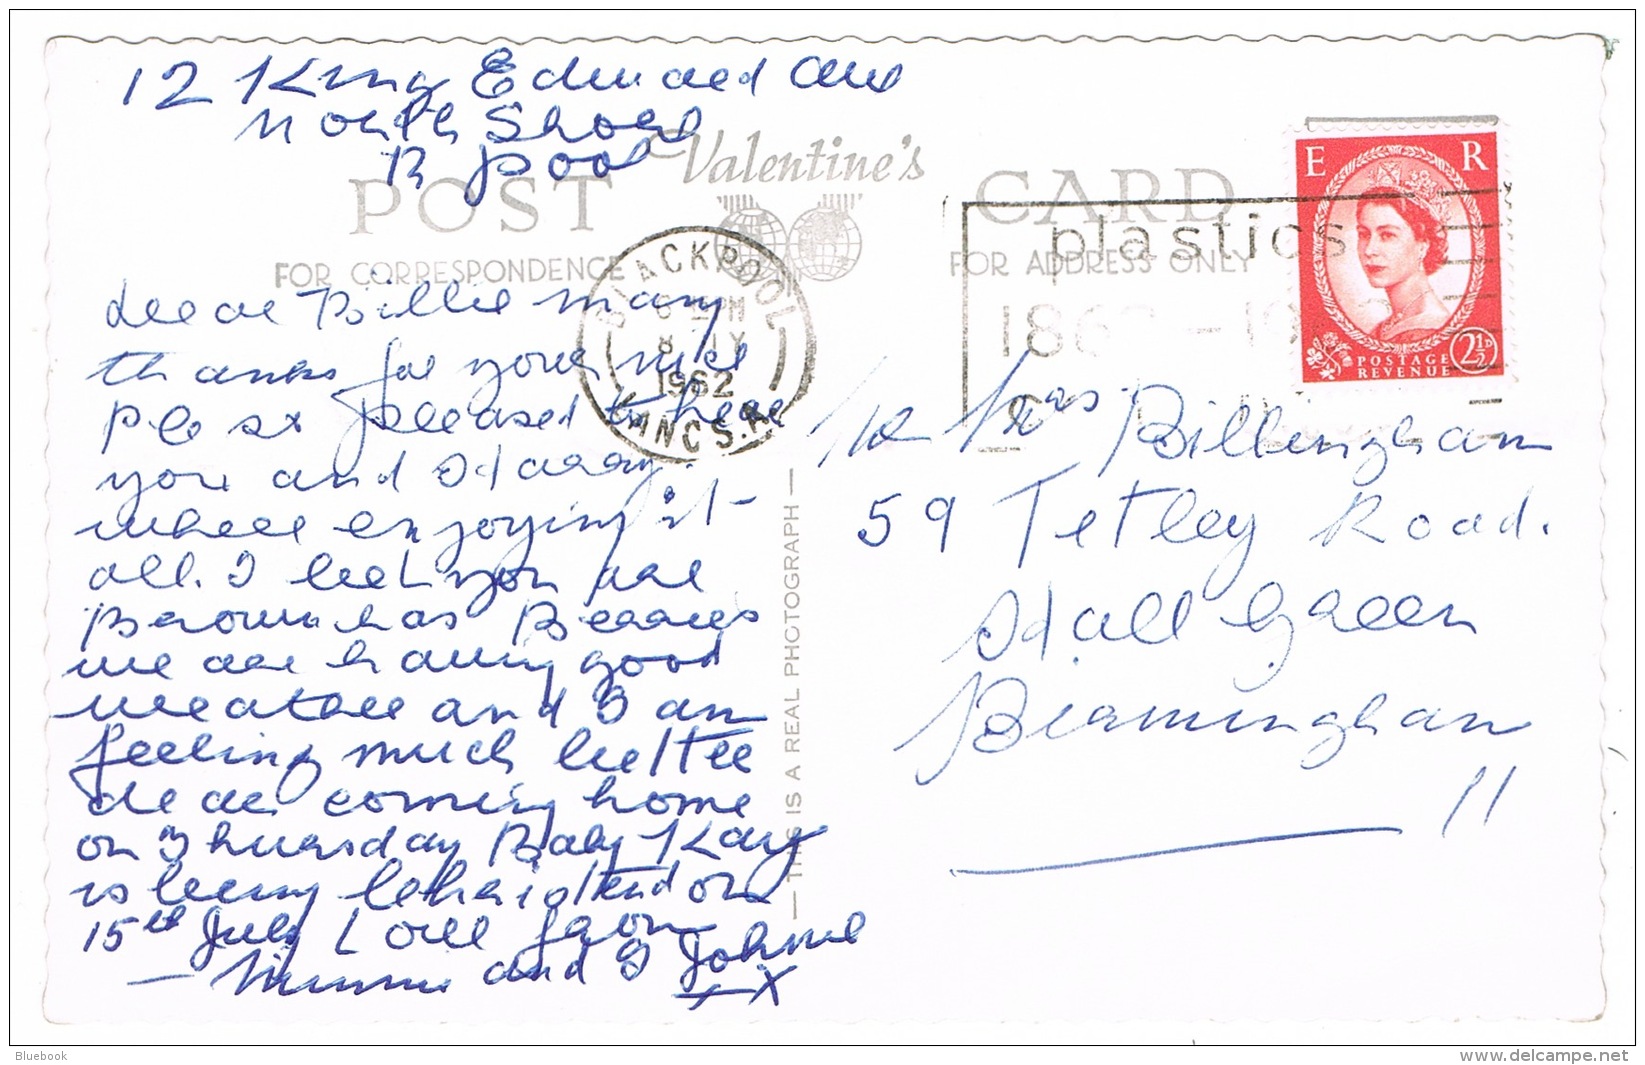 12 King Edward Ave
North Shore
B pool
Valentine's
POST CARD
FOR CORRESPONDENCE
FOR ADDRESS ONLY
BLACKPOOL
PM
8 JY
1962
LANCS. A
plastics
1862-19
E R
POSTAGE
REVENUE
2½D
dear Billie many
thanks for your nice
P.C so pleased to hear
you and Harry.
where enjoying it
all. I bet you are
Brown has Berrie's
we are having good
weather and I am
feeling much better
dear coming home
on Thursday Baby Kay
is being Christend on
15th July L all from
- Minnie and J Johnnie
x x
THIS IS A REAL PHOTOGRAPH
Mrs Billingham
59 Tetley Road.
Hall Green
Birmingham
11
Bluebook
www.delcampe.net